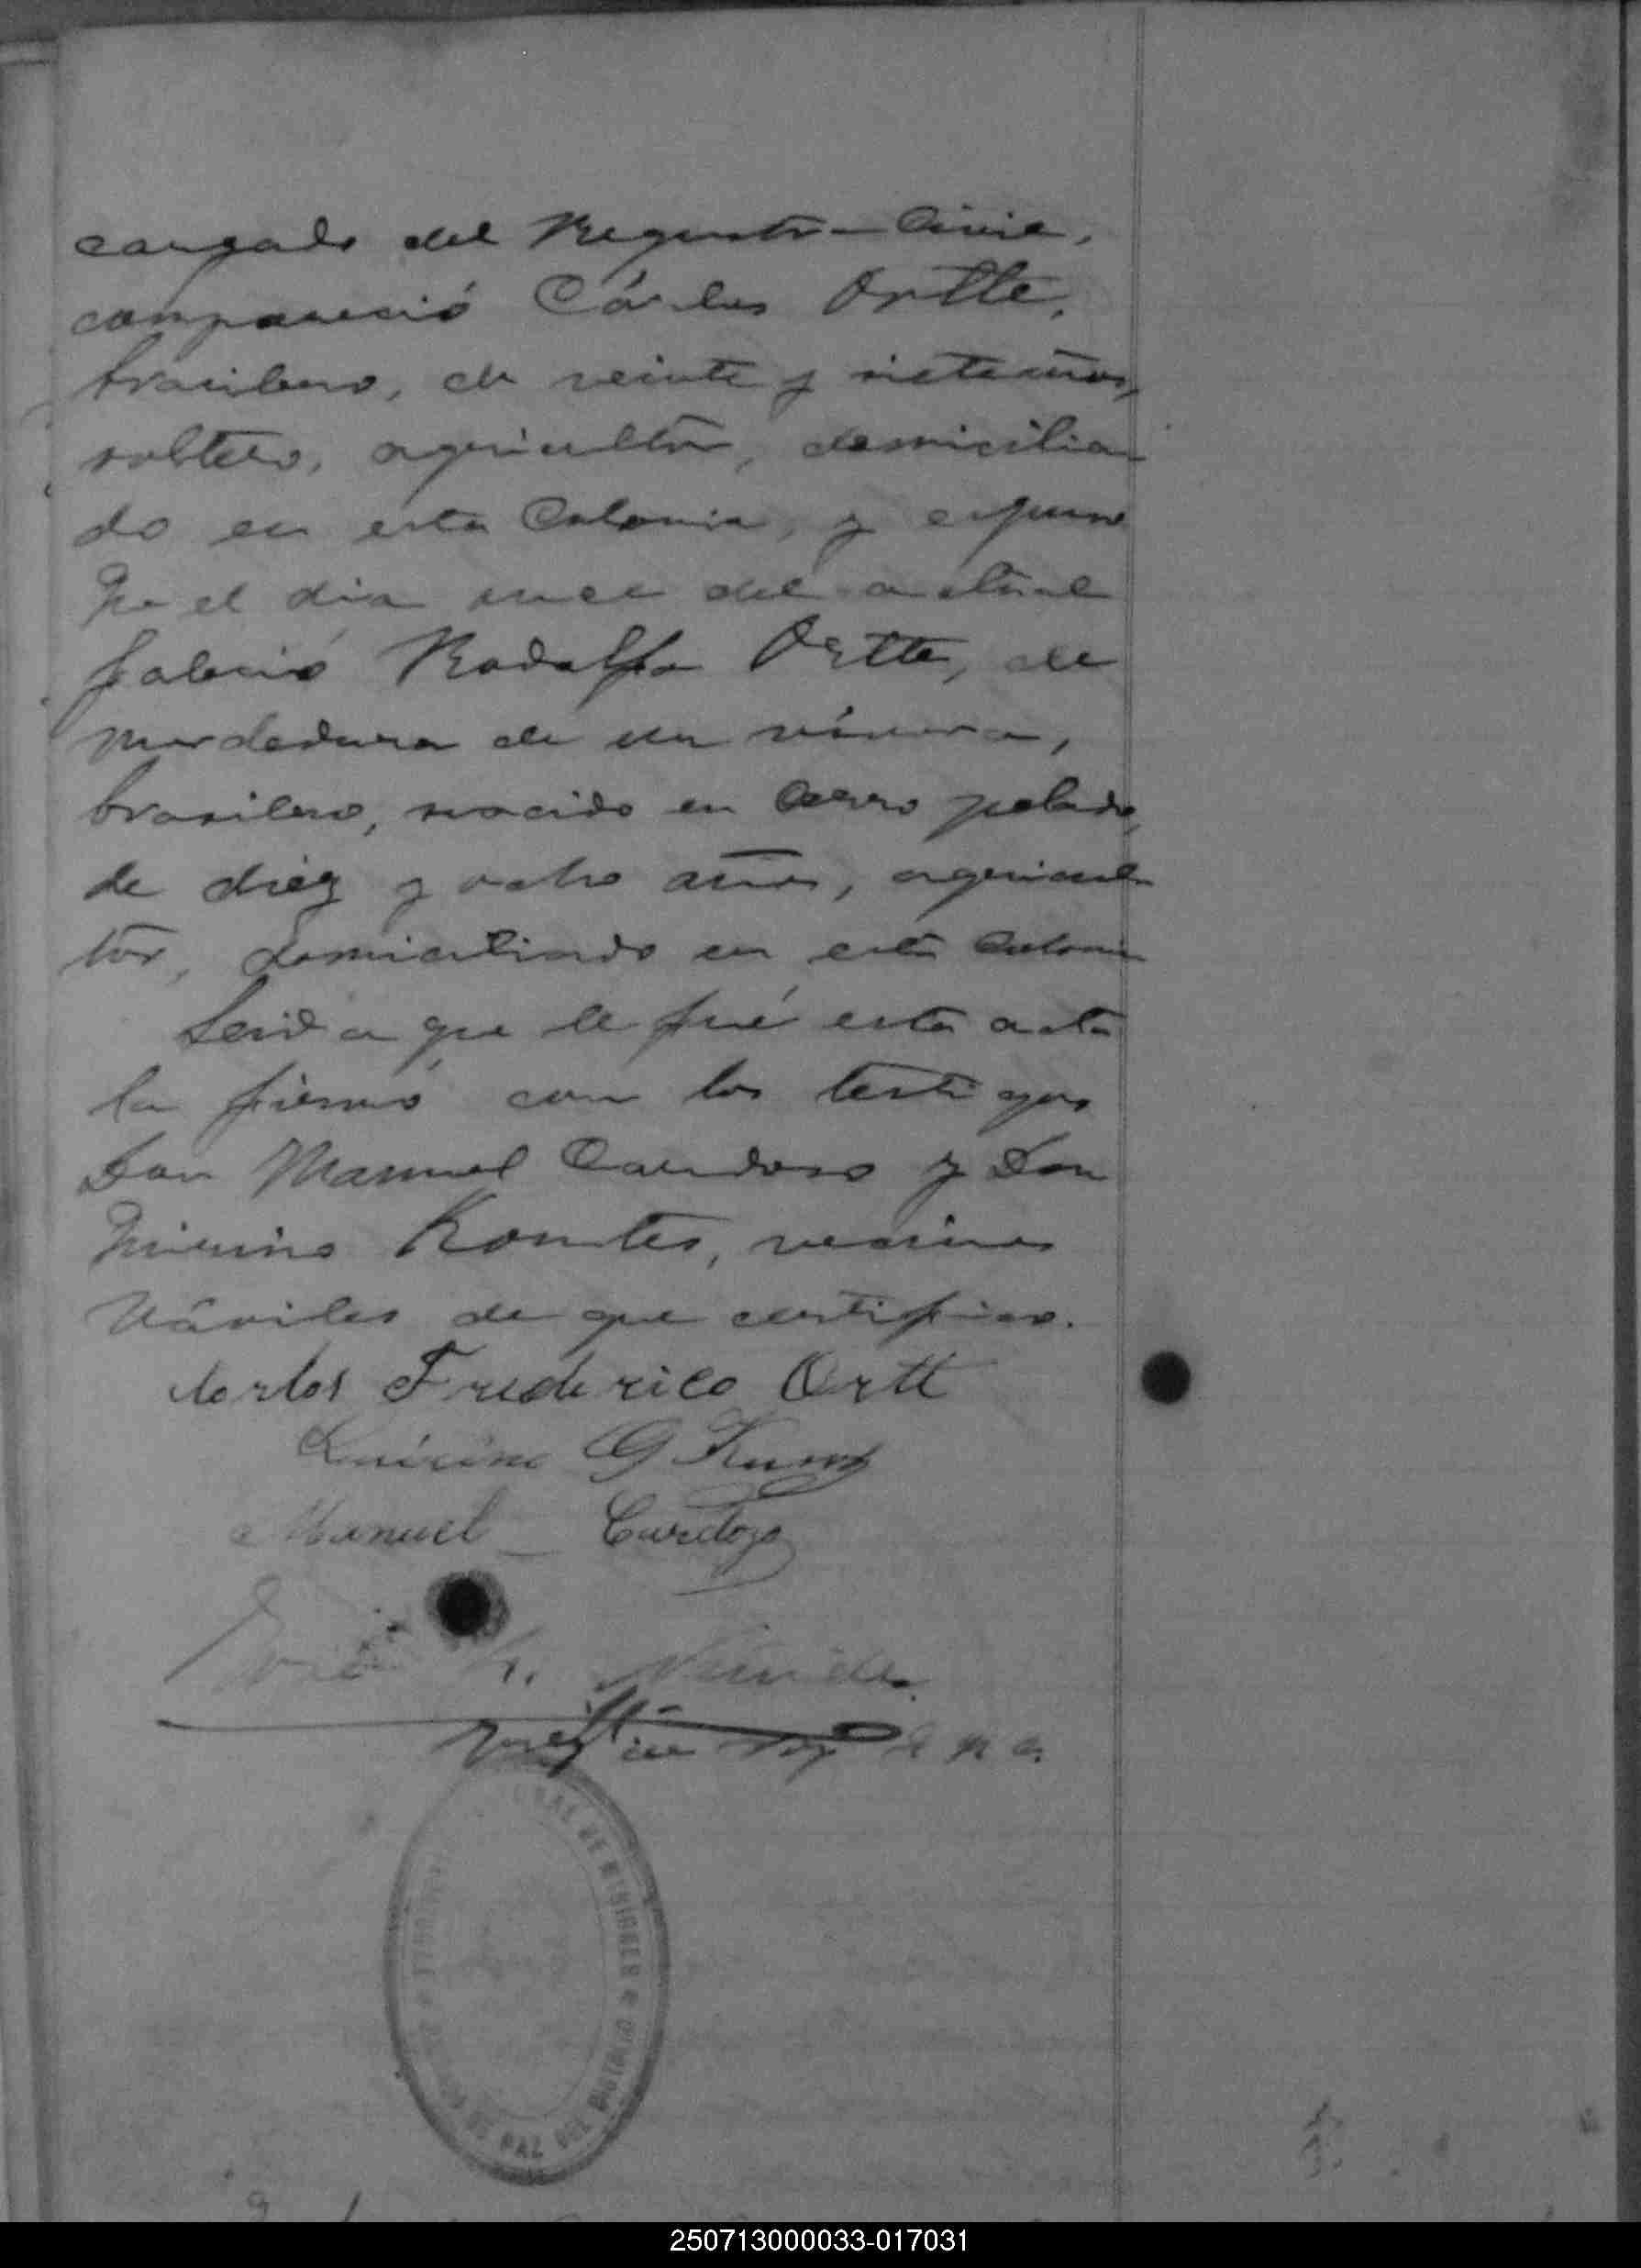 cargado del Registro Civil,
compareció Cárlos Ortte,
brasilero, de veinte y siete años,
soltero, agricultor, domicilia-
do en esta Colonia, y expuso
Que el dia once del actual
falació Rodolfo Ortte, de
mordedura de un vívora,
brasilero, nacido en Cerro pelado,
de diéz y ocho años, agricul
tor, domiciliado en esta Colonia
Leida que le fué esta acta
la firmó con los testigos
Don Manuel Cardoso y Don
Quirino, vecinos
háviles de que certifico.
Carlos Frederico Ortt
Quirino G
Manuel Cardozo
José
DE MISIONES
DE PAZ DEL DISTRITO
250713000033-017031